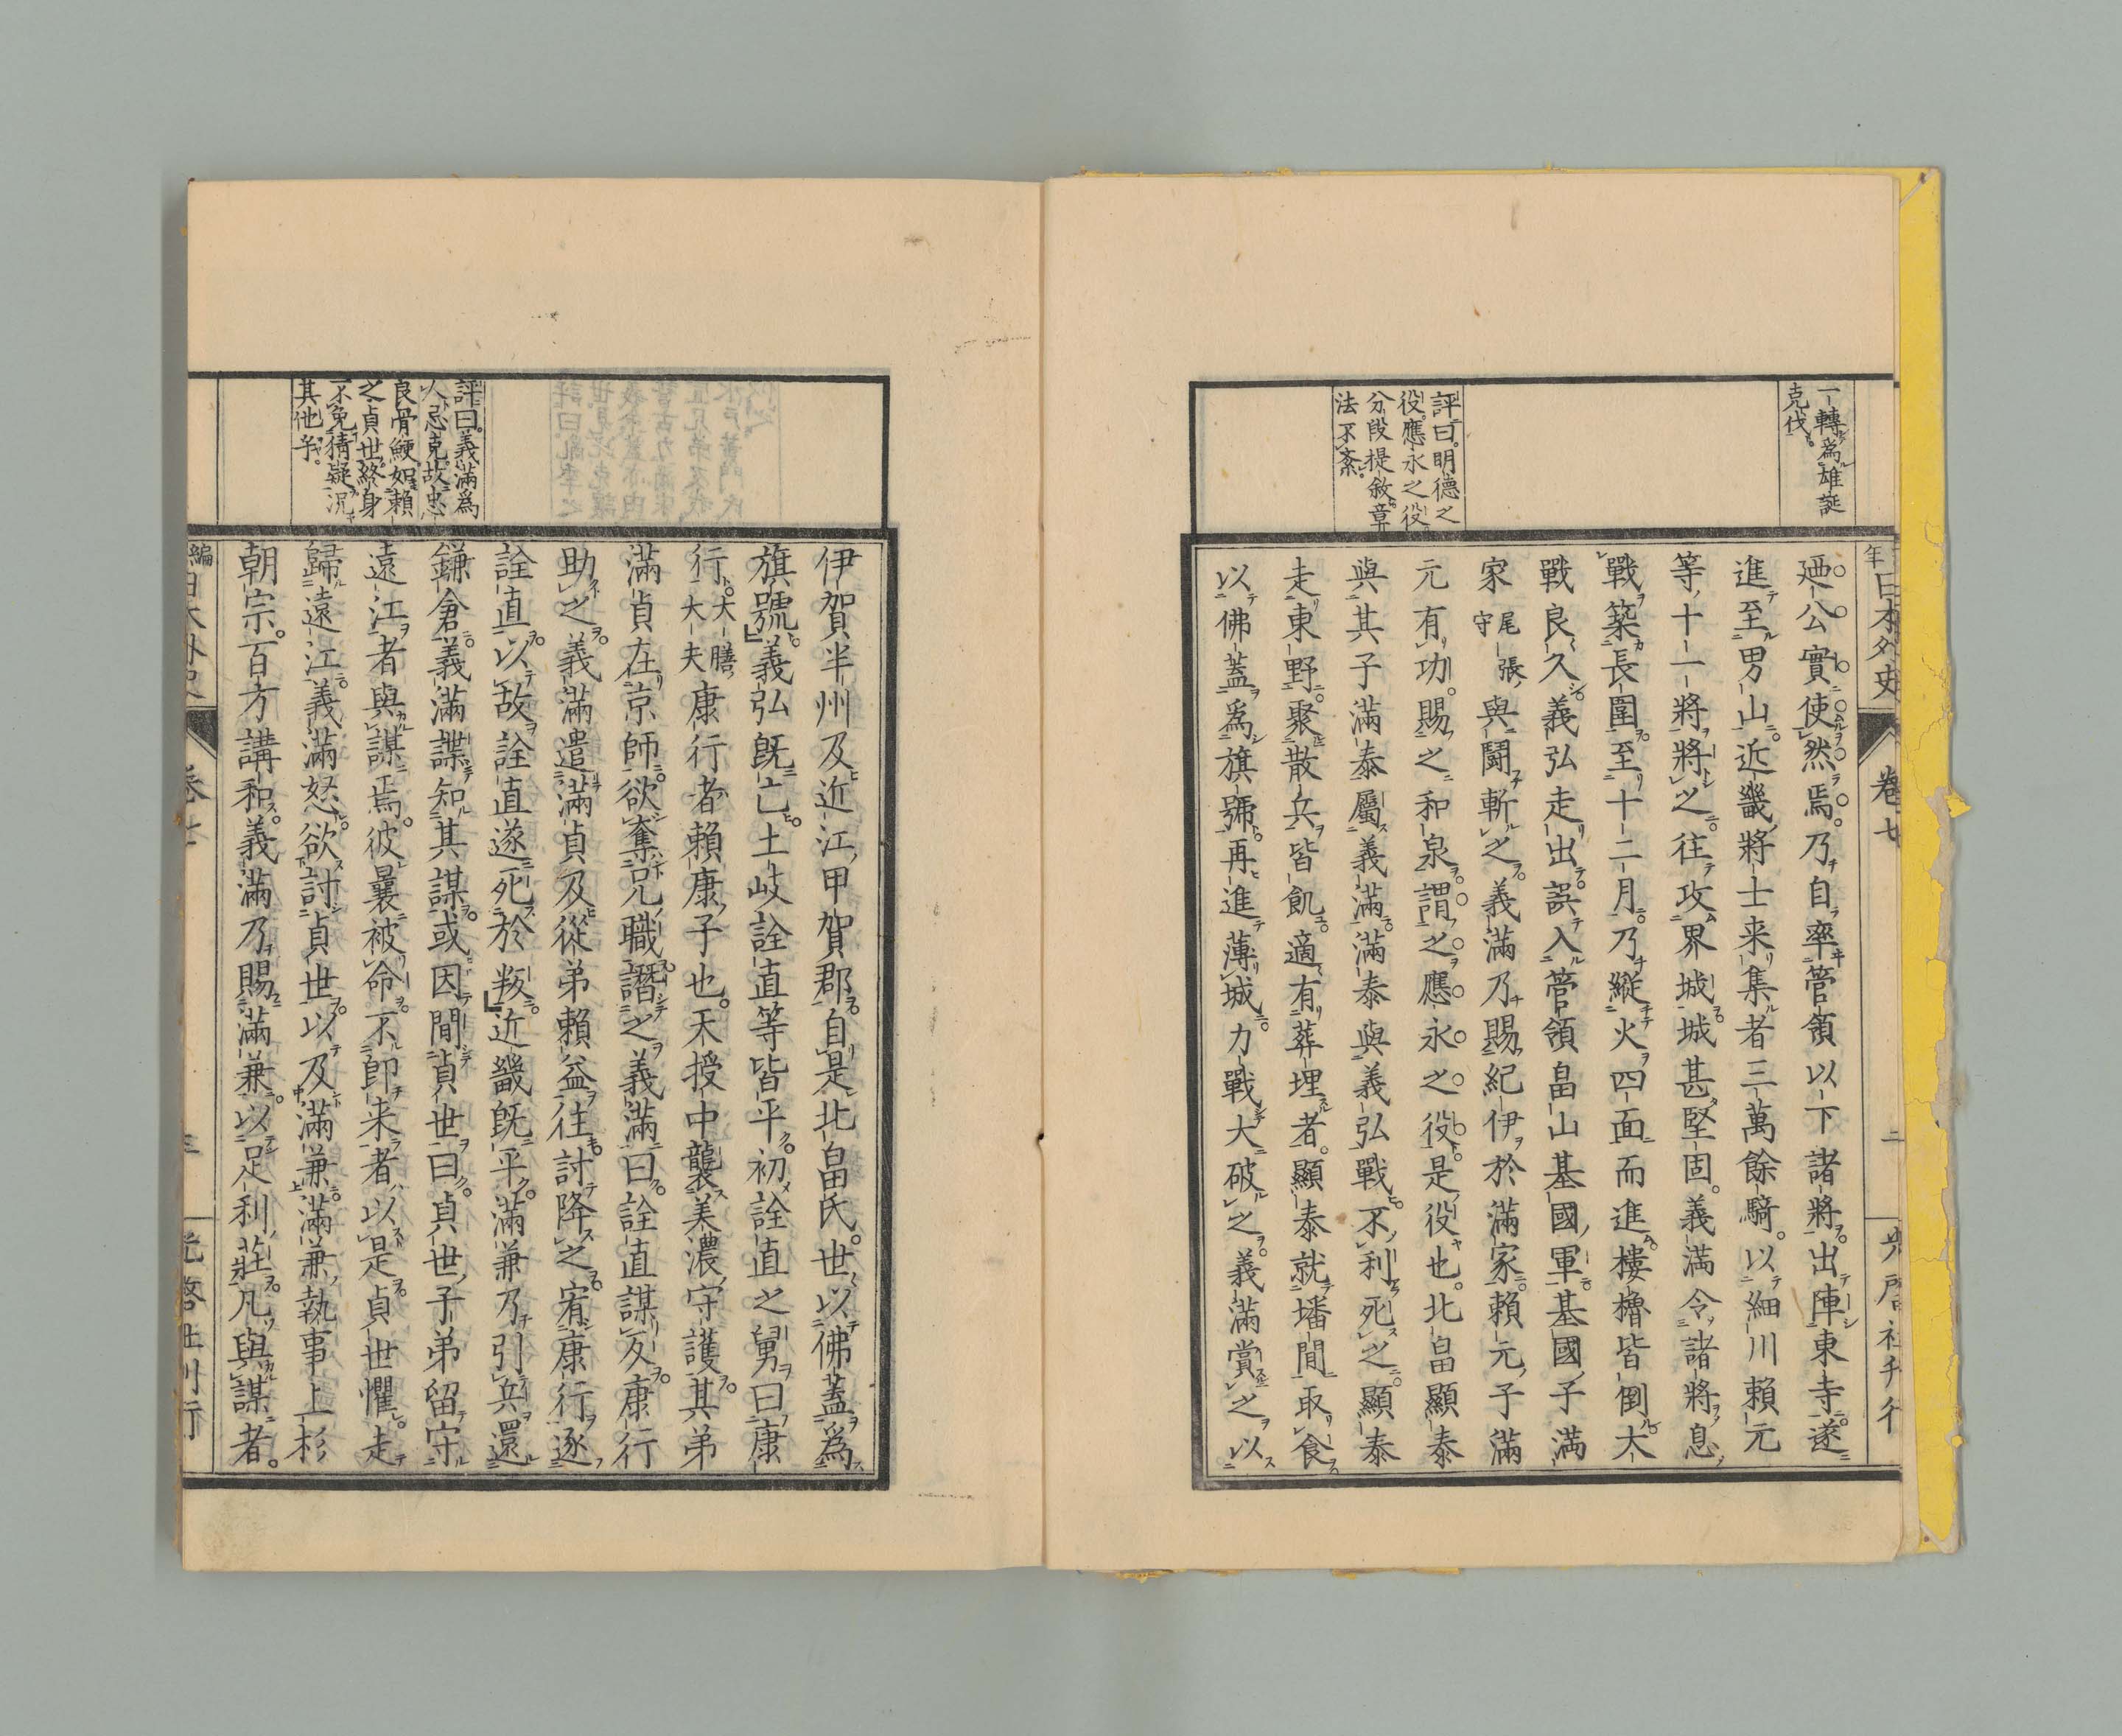 日本外史
卷七
二
光啓社刊行
一轉爲雄誕
克伐。
評曰。明德之
役。應永之役。
分段提敘。章
法不紊。
廼公實使然焉。乃自率管領以下諸將。出陣東寺。遂
進至男山。近畿將士来集者三萬餘騎。以細川賴元
等十一將將之。往攻界城。城甚堅固。義滿令諸將息
戰築長圍。至十二月。乃縱火四面而進。樓櫓皆倒。大
戰良久。義弘走出。誤入管領畠山基國軍。基國子満
家尾張守與鬪斬之。義滿乃賜紀伊於滿家。賴元子滿
元有功。賜之和泉。謂之應永之役。是役也。北畠顯泰
與其子滿泰屬義滿。滿泰與義弘戰。不利死之。顯泰
走東野。聚散兵。皆飢。適有葬埋者。顯泰就墦間取食。
以佛蓋爲旗號。再進薄城。力戰大破之。義滿賞之以
伊賀半州及近江甲賀郡。自是北畠氏。世以佛蓋爲
旗號。義弘旣亡。土岐詮直等皆平。初詮直之舅曰康
行。大膳大夫康行者賴康子也。天授中襲美濃守護。其弟
滿貞在京師。欲奪兄職。譖之義滿曰。詮直謀反。康行
助之。義滿遣滿貞及從弟賴益往討降之。宥康行。逐
詮直。以故詮直遂死於叛。近畿旣平。滿兼乃引兵還
鎌倉。義滿諜知其謀。或因間貞世曰。貞世子弟留守
遠江者與謀焉。彼曩被命。不即来者。以是。貞世懼。走
歸遠江。義滿怒。欲討貞世。以及滿兼。滿兼執事上杉
朝宗。百方講和。義滿乃賜滿兼。以足利莊。凡與謀者。
評曰。義滿爲
人忌克。故忠
良骨鯁如賴
之貞世。終身
不免猜疑。況
其他乎。
卷七
三
光啓社刊行